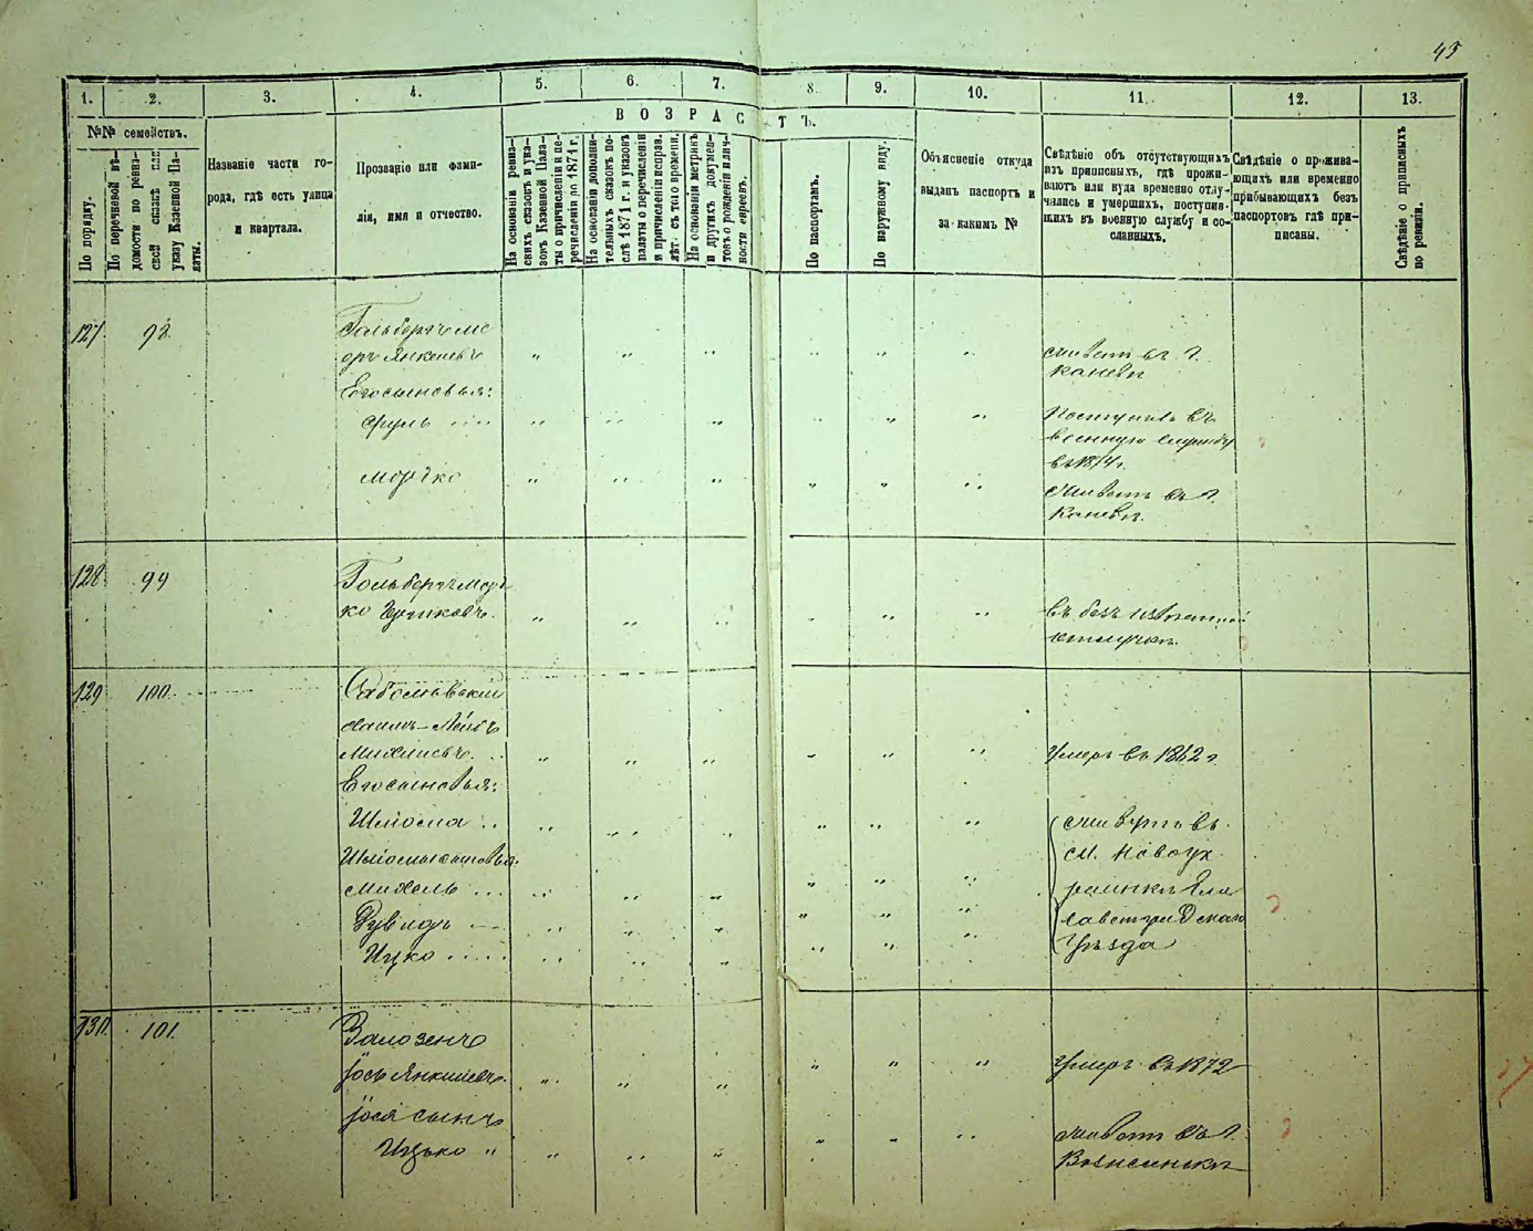 45
1. 2. 3. 4. 5. 6. 7. 8. 9. 10. 11. 12. 13.
ВОЗРАСТЪ.
№№ семействъ.
По порядку.
По перечневой вѣ-
домости по ревиз-
ской сказкѣ или
указу Казенной Па-
латы.
Названіе части го-
рода, гдѣ есть улица
и квартала.
Прозваніе или фами-
лія, имя и отчество.
На основаніи ревиз-
скихъ сказокъ и ука-
зокъ Казенной Пала-
ты о причисленіи и пе-
речисленіи по 1871 г.
На основаніи дополни-
тельныхъ сказокъ по-
слѣ 1871 г. и указовъ
палаты о перечисленіи
и причисленіи исправ.
лѣт. съ того времени.
На основаніи метрикъ
и другихъ докумен-
товъ о рожденіи и лич-
ности евреевъ.
По паспортамъ.
По наружному виду.
Объясненіе откуда
выданъ паспортъ и
за какимъ №
Свѣдѣніе объ отсутствующихъ
изъ приписныхъ, гдѣ прожи-
ваютъ или куда временно отлу-
чались и умершихъ, поступив-
шихъ въ военную службу и со-
сланныхъ.
Свѣдѣніе о прожива-
ющихъ или временно
прибывающихъ безъ
паспортовъ гдѣ при-
писаны.
Свѣдѣніе о приписныхъ
по ревизіи.
127. 98.
Гольбергъ
Янкелевъ
живетъ въ г.
Каневѣ
Его сыновья:
Сруль
Поступилъ въ
военную службу
въ 1874 г.
Мордко
Живетъ въ г.
Каневѣ.
128 99
Гольбергъ Морд
ко
въ безъизвѣстной
отлучкѣ.
129 100.
Хаимъ-Лейбъ
Михелевъ.
Умеръ въ 1862 г.
Его сыновья:
Шліома
Шліомы сыновья.
Михель
Дувидъ
Ицко
живутъ въ
м. Новоук
раинкѣ Ели
саветградскаго
Уѣзда
130. 101.
Залозенъ
Іось Янкелевъ.
Умеръ въ 1872
Іося сынъ
Ицько
живетъ въ г.